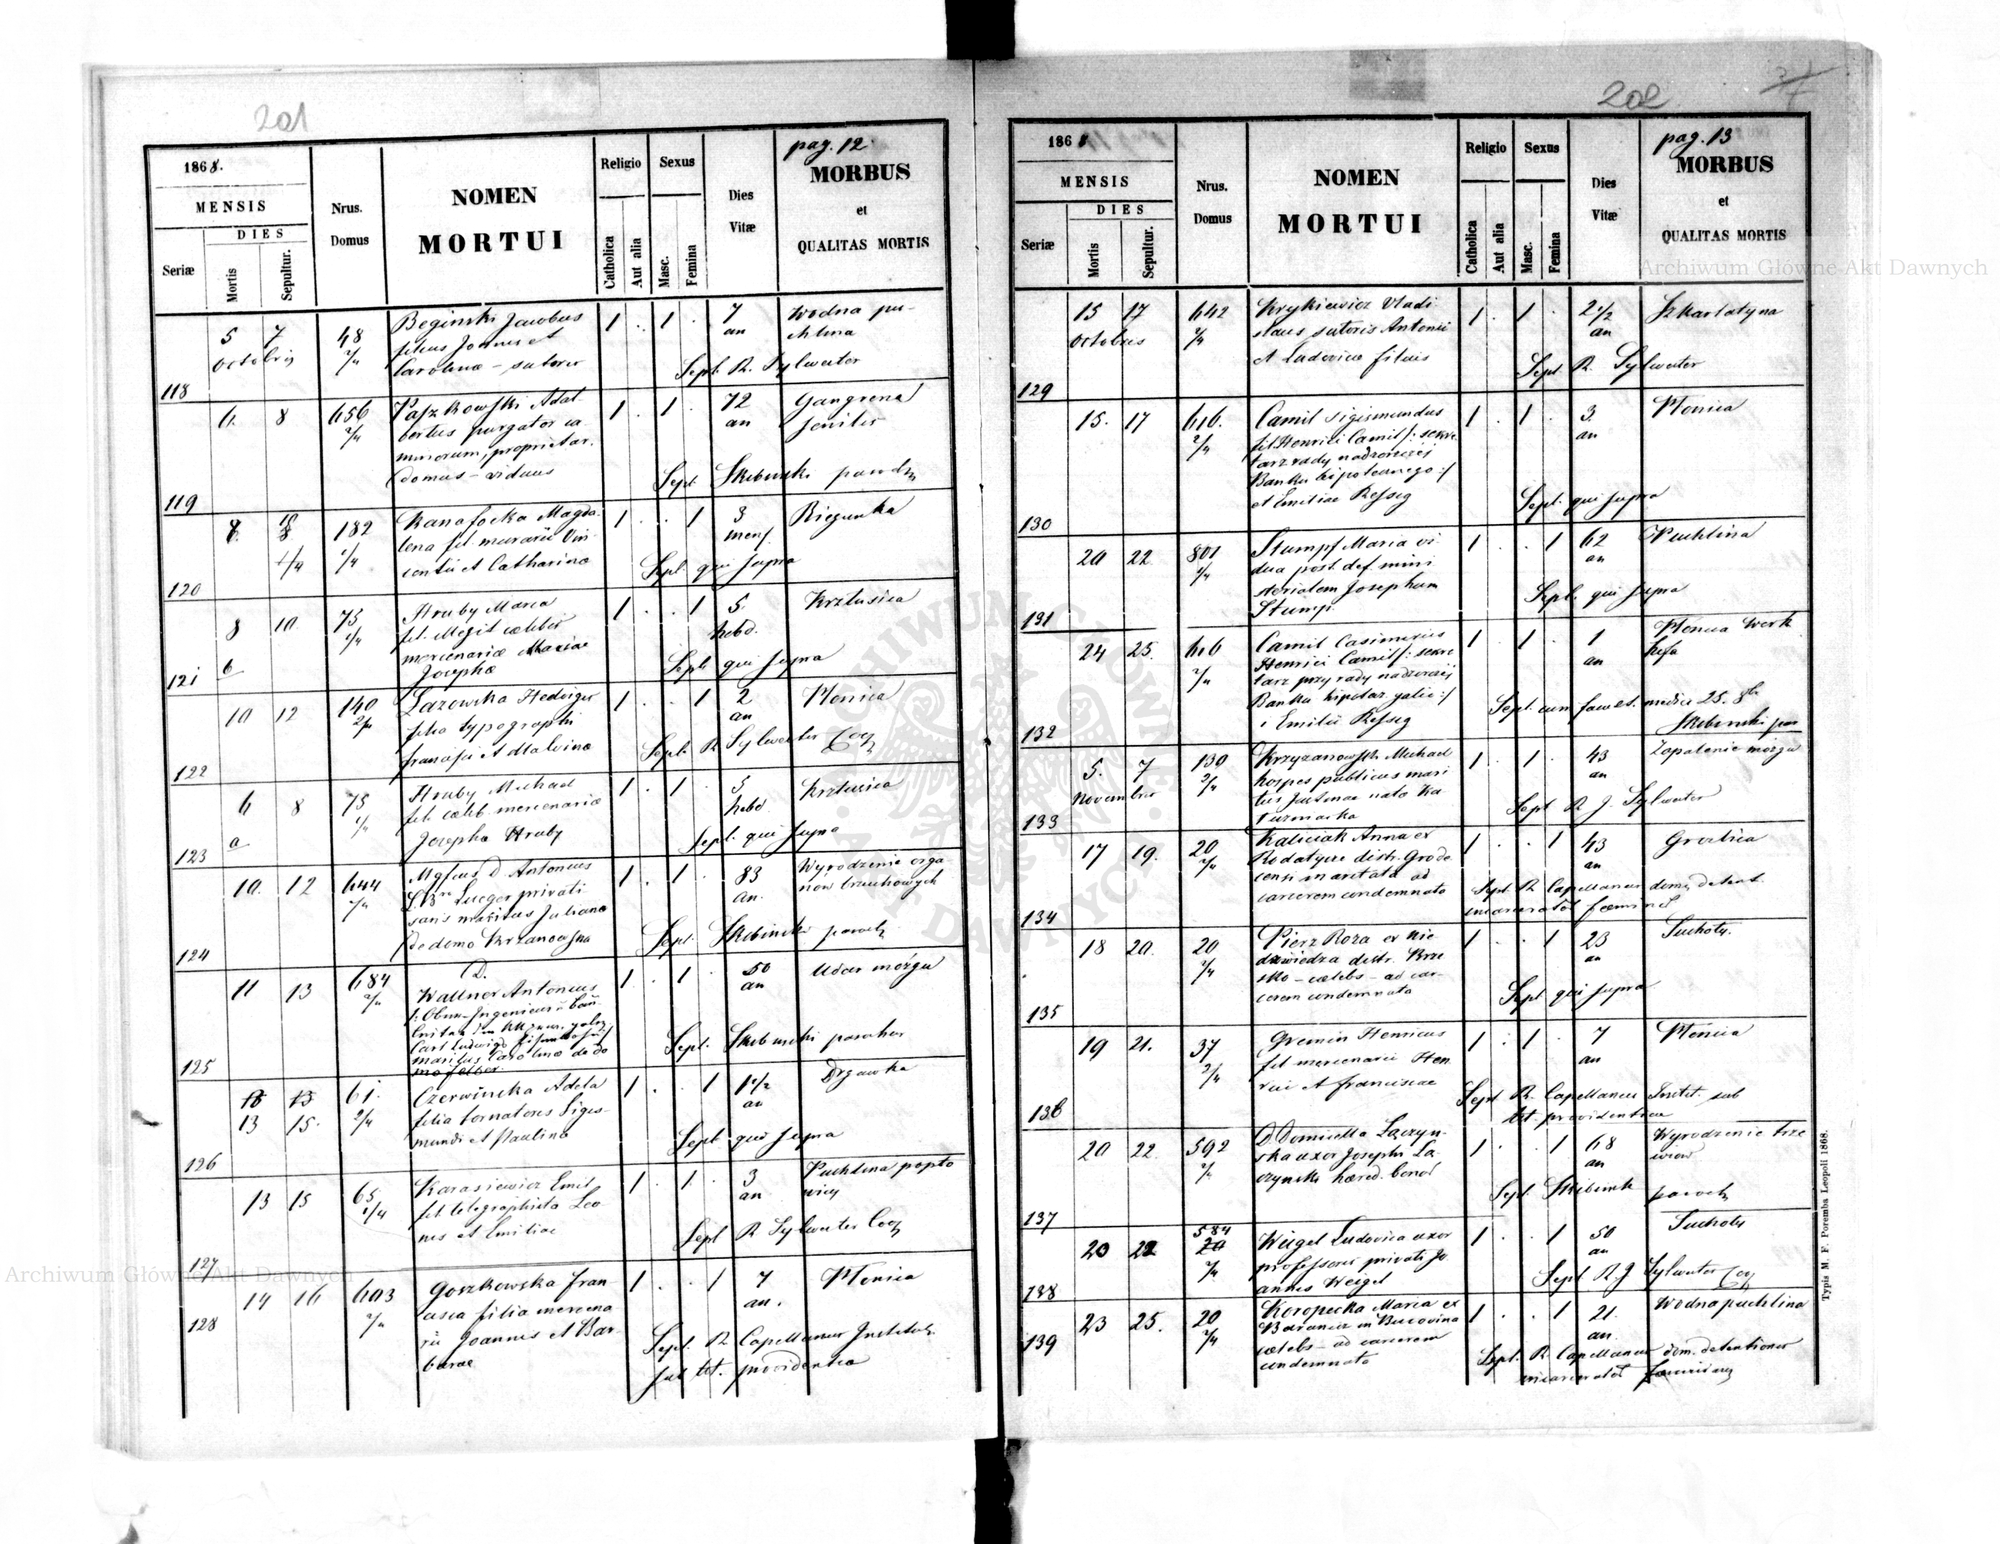 201
1868.
MENSIS
DIES
Seriæ
Mortis
Sepultur.
Nrus.
Domus
NOMEN
MORTUI
Religio
Catholica
Aut alia
Sexus
Masc.
Femina
Dies
Vitæ
pag. 12.
MORBUS
et
QUALITAS MORTIS
118
5 7
octobris
48
Beginski Jacobus
filius Joannis et
Carolinæ - sutoris
1 . 1 .
7
an
Wodna pu-
chlina
Sepel. R. Sylwester
119
6. 8
656
2/4
Adal
bertus purgator ca
minorum, proprietar.
domus - viduus
1 . 1 .
72
an
Gangrena
senilis
Sepel. Skibinski paroch
120
182
Magda
lena fil. murarii Vin-
centii et Catharinæ
1 . . 1
3
mens.
Biegunka
Sepel. qui supra
121
8 10
b
75
Hruby Maria
mercenariæ Mariae
Josepha
1 . . 1
5
hebd.
Krztusica
Sepel. qui supra
122
10 12
140
2/4
Lazowska Hedvigis
filia typographi
Francisci et Malvinæ
1 . . 1
2
an
Płonica
Sepel. R. Sylwester Coop
123
6 8
a
75
Hruby Michael
fil. cælib. mercenariæ
Josepha Hruby
1 . 1 .
5
hebd
Krztusica
Sepel. qui supra
124
10. 12
644
D. Antonius
privati-
sans maritus Julianæ
de domo Krzanowska
1 . 1 .
83
an.
Wyrodzenie orga
now brzuchowych
Sepel. Skibinski paroch.
125
11 13
684
2/4
D.
Wallner Antonius
Carl Ludwigs
maritus Carolinæ de do
mo
1 . 1 .
50
an
Udar mózgu
Sepel. Skibinski parochus
126
13 15.
61.
2/4
Czerwinska Adela
filia tornatoris Sigis-
mundi et Paulinæ
1 . . 1
1 1/2
an
Drgawka
Sepel. qui supra
127
13 15
65
1/4
Karasiewicz Emil
fil. telegraphista Leo-
nis et Emiliae
1 . 1 .
3
an
Puchlina
Sepel. R. Sylwester Coop
128
14 16
603
2/4
Goszkowska Fran
cisca filia mercena
rii Joannis et Bar-
barae
1 . . 1
7
an.
Płonica
Sepel. R. Capellanus Institut.
sub tit. providentia
202
1868
MENSIS
DIES
Seriæ
Mortis
Sepultur.
Nrus.
Domus
NOMEN
MORTUI
Religio
Catholica
Aut alia
Sexus
Masc.
Femina
Dies
Vitæ
pag. 13
MORBUS
et
QUALITAS MORTIS
129
15 17
octobris
642
2/4
Krykiewicz Vladi
slaus, sutoris Antonii
et Ludovicæ filius
1 . 1 .
2 1/2
an
Szkarlatyna
Sepel R. Sylwester
130
15. 17
616.
2/4
Camil Sigismundus
fil. Henrici Camil /: sekre
tarz rady nadzorczej
Banku hipotecznego :/
et Emiliae Ressig
1 . 1 .
3
an
Płonica
Sepel. qui supra
131
20 22
801
2/4
Stumpf Maria vi
dua post def. mini
sterialem Josephum
Stumpf.
1 . . 1
62
an
Puchlina
Sepel. qui supra
132
24 25.
616
2/4
Camil Casimirus
Henrici Camil /: sekre
tarz przy rady nadzorczej
Banku hipotecz. galic :/
i Emilii Ressig
1 . 1 .
1
an
Płonica
Skibinski par
133
5. 7
Novembris
130
2/4
Krzyzanowski Michael
hospes publicus mari
tus Justinae nata Ka
czmarka
1 . 1 .
43
an
Zapalenie mózgu
Sepel R. J. Sylwester
134
17 19.
20
2/4
Kaliciak Anna ex
Rodatycze distr. Grode
censi maritata ad
carcerem condemnata
1 . . 1
43
an
Gruzlica
Sepel. R. Capellanus domus detent.
incarceratar. fœmina
135
18 20.
20
2/4
Pierz Roza ex Nie
dzwiedza distr. Brze
sko - cælebs - ad car-
cerem condemnata
1 . . 1
23
an
Suchoty.
Sepel qui supra
136
19 21.
37
2/4
Gremin Henricus
fil. mercenarii Hen
rici et Franciscae
1 . 1 .
7
an
Płonica
Sepel R. Capellanus Instit. sub
tit. providentiae
137
20 22
592
2/4
D. Domicella Łączyn-
ska uxor Josephi Łą
czynski hæred. bonor
1 . . 1
68
an
Wyrodzenie trze
wiow
Sepel. Skibinski paroch
138
20 22
584
2/4
Weigel Ludovica uxor
professoris privati Jo
annis Weigel
1 . . 1
50
an
Suchoty
Sepel R. J. Sylwester Coop
139
23 25.
20
2/4
Koropecka Maria ex
Baranica in Bucovina
cælebs - ad carcerem
condemnata
1 . . 1
21.
an.
Wodna puchlina
Sepel. R. Capellanus dom. detentionis
incarceratar
Typis M. F. Poremba Leopoli 1868.
Archiwum Główne Akt Dawnych
Archiwum Główne Akt Dawnych
ARCHIWUM GŁÓWNE AKT DAWNYCH